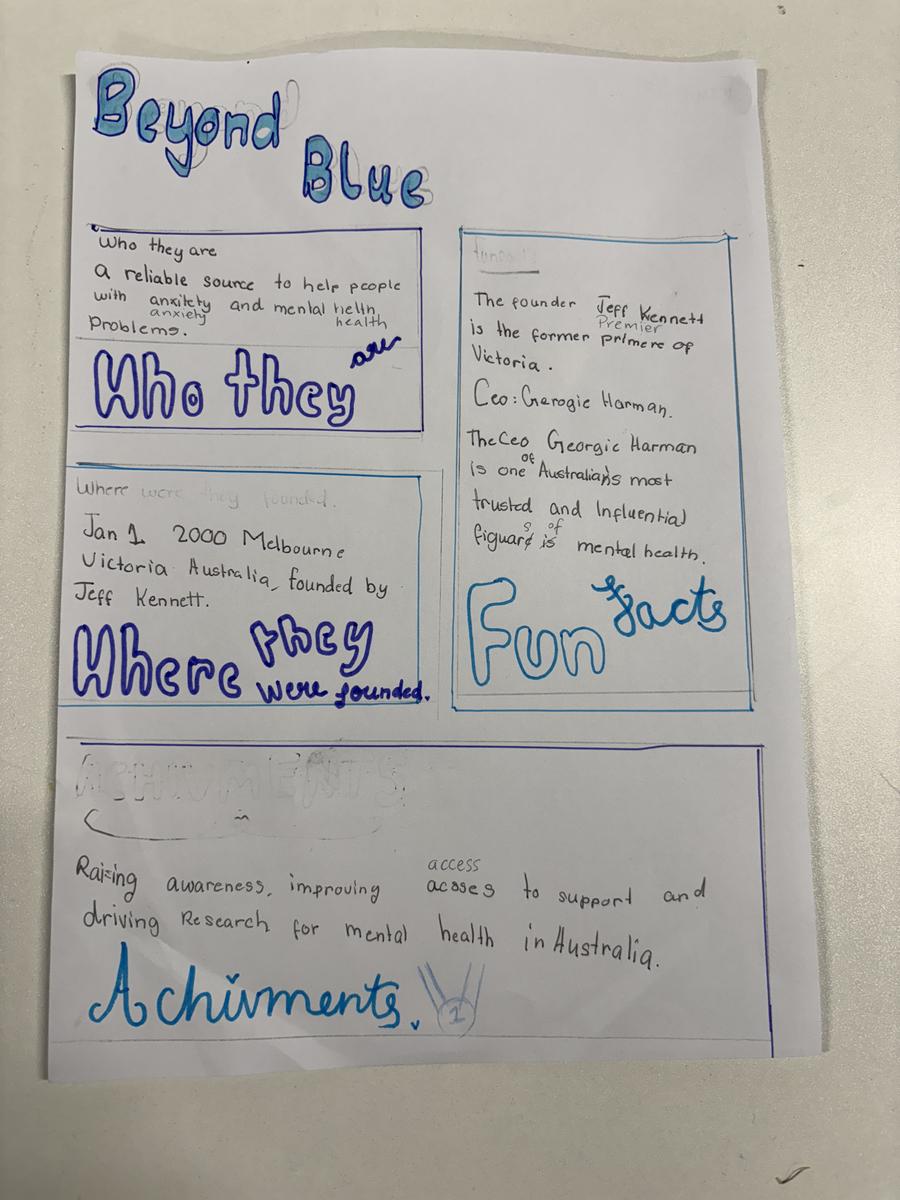 Beyond
Blue
Who they are
a reliable source to help people
with anxitety and mental helth
anxiety health
problems.
Who they are
Where were they founded.
Jan 1 2000 Melbourne
Victoria Australia, founded by
Jeff Kennett.
Where they
were founded.
The founder Jeff Kennett
Premier
is the former primere of
Victoria.
Ceo: Gerogie Harman.
The Ceo Georgie Harman
of
is one Australian's most
trusted and Influential
s of
figuars is mental health.
Fun facts
ACHIVMENTS
access
Raising awareness, improving acsses to support and
driving Research for mental health in Australia.
Achivments.
1